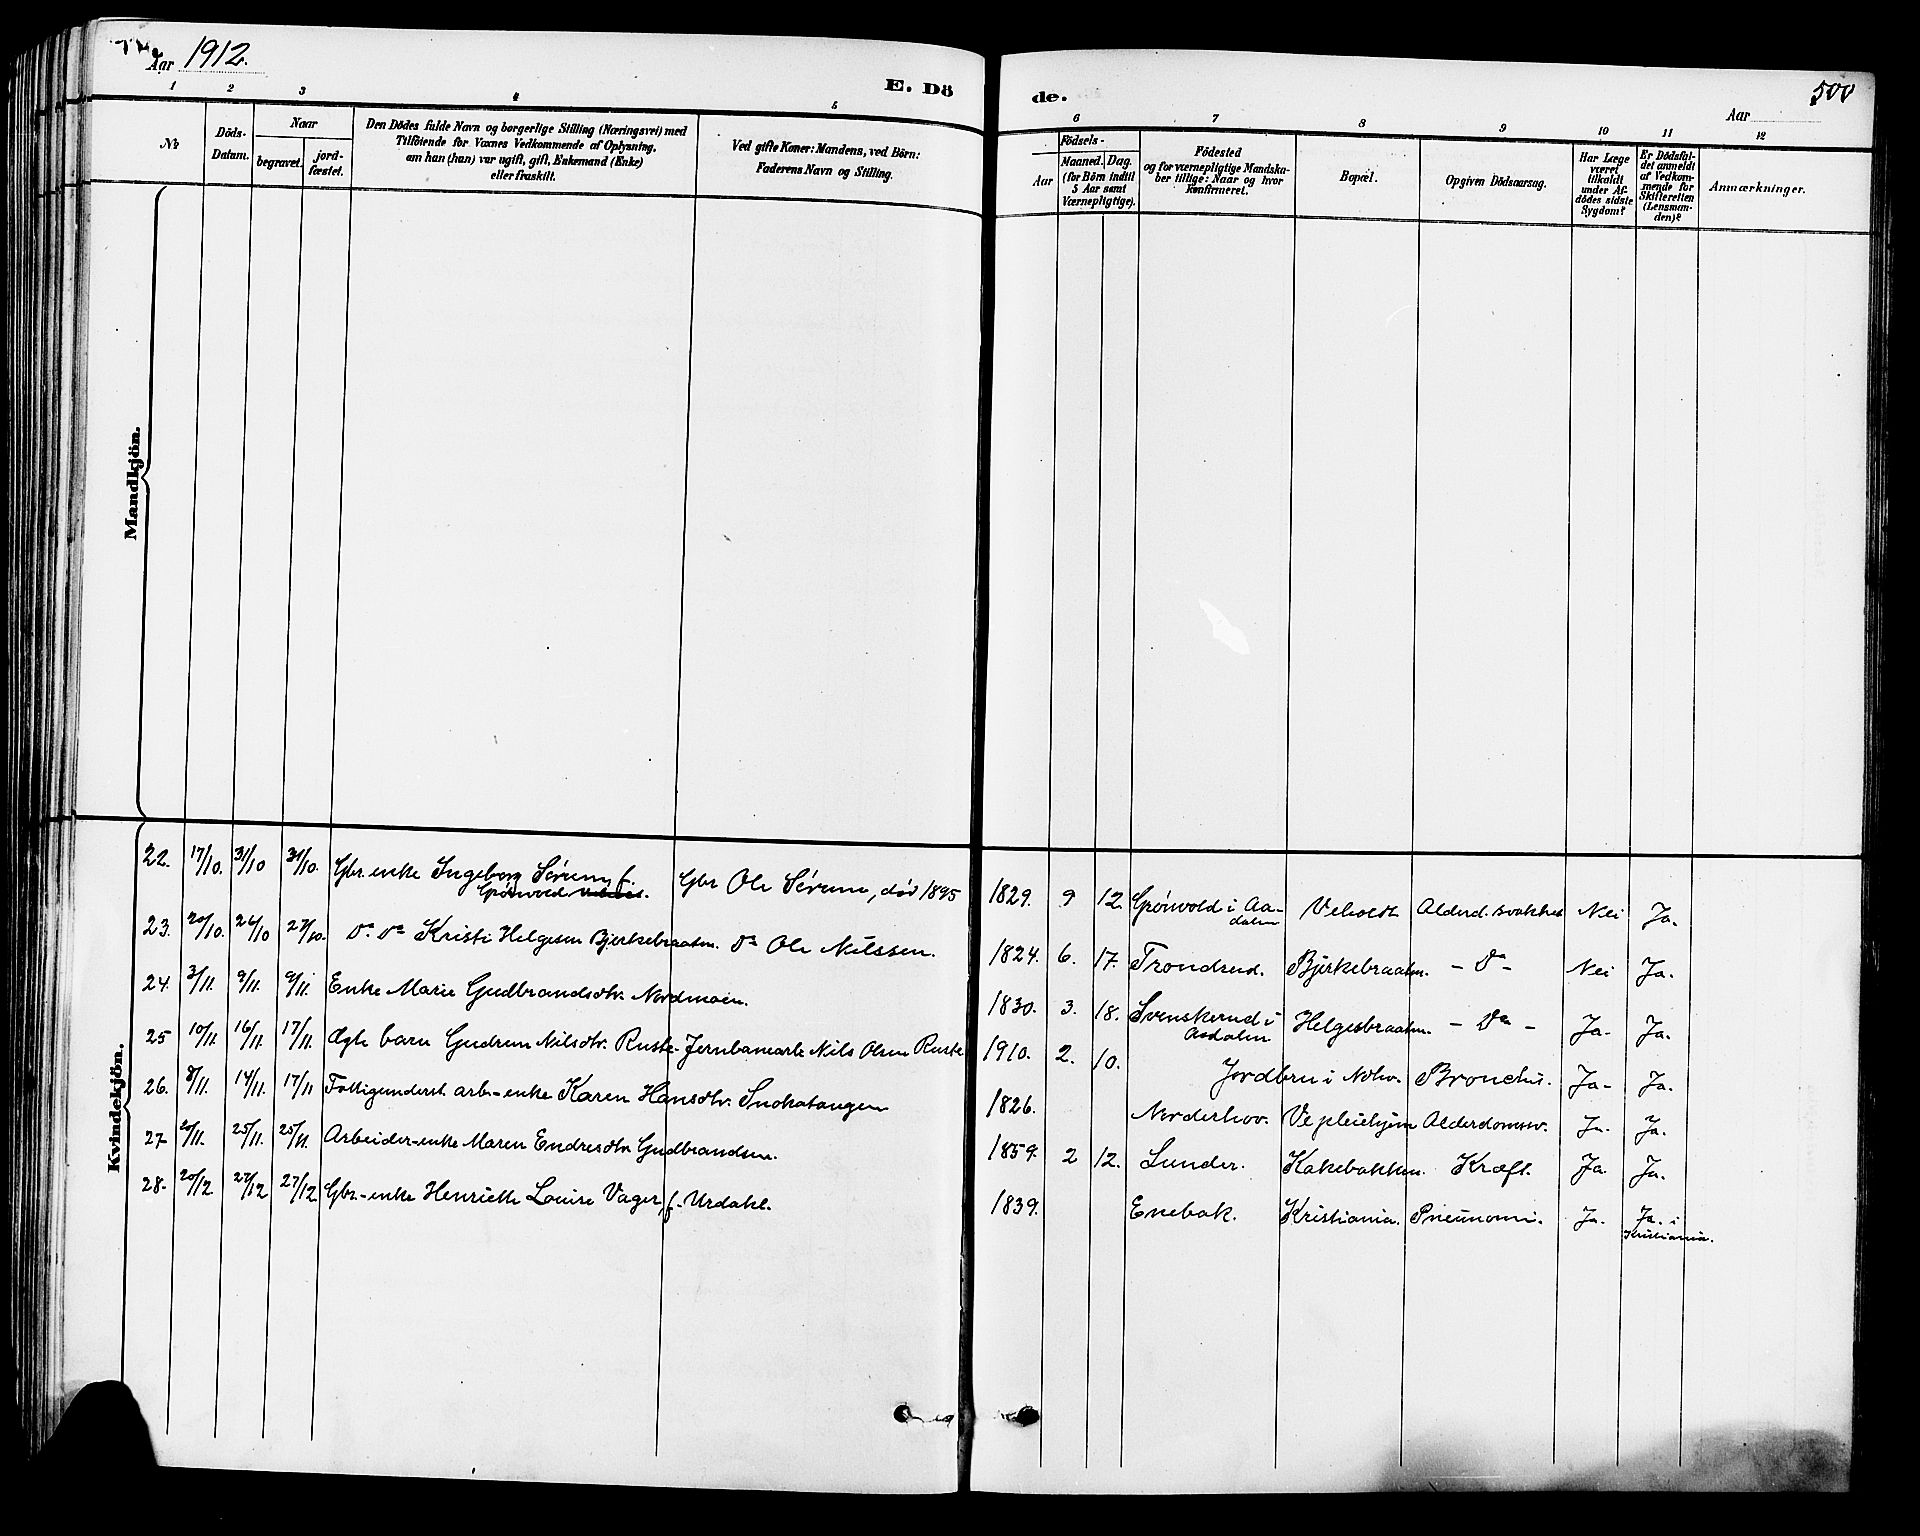 Aar 1912.
E. Dö
de.
500
Aar
1 2 3 4 5
6 7 8 9 10 11 12
No
Döds-
Datum.
Naar
begravet.
jord-
fæstet.
Den Dödes fulde Navn og borgerlige Stilling (Næringsvei) med
Tilföiende for Voxnes Vedkommende af Oplysning,
om han (hun) var ugift, gift, Enkemand (Enke)
eller fraskilt.
Ved gifte Koner: Mandens, ved Börn:
Faderens Navn og Stilling.
Födsels-
Aar
Maaned. Dag.
(for Börn indtil
5 Aar samt
Værnepligtige).
Födested
og for værnepligtige Mandska-
ber tillige: Naar og hvor
Konfirmeret.
Bopæl.
Opgiven Dödsaarsag.
Har Læge
været
tilkaldt
under Af-
dödes sidste
Sygdom?
Er Dödsfal-
det anmeldt
af Vedkom-
mende for
Skifteretten
(Lensman-
den)?
Anmærkninger.
Mandkjön.
Kvindekjön.
22. 17/10. 31/10 31/10. Gbr. enke Ingeborg Sørum, f. Gbr Ole Sørum, død 1895 1829. 9 12. Grønvold i Aa- Veholdt Alderd. svakhet Nei Ja.
Grønvold
dalen
23. 20/10. 26/10 27/10. Do. Do Kristi Helgesen Bjerkebraaten. Do Ole Nilssen. 1824. 6. 17. Trondrud. Bjerkebraaten. - Do - Nei Ja.
24. 3/11. 9/11. 9/11. Enke Marie Gudbrandsdtr. Nordmoen. 1830. 3. 18. Svenskerud i Helgesbraaten. - Do - Ja- Ja.
Aadalen
25 10/11. 16/11. 17/11. Ægte barn Gudrun Nilsdtr. Ruste- Jernbanearb. Nils Olsen Ruste 1910. 2. 10. Jordbru i Nohov. Bronchit. Ja- Ja.
26. 8/11. 14/11. 17/11 Fattigunderst. arb.-enke Karen Hansdtr. Snokatangen 1826. Norderhov. Ve pleiehjem Alderdomssv. Ja- Ja.
27- 25/11. 25/11. Arbeider-enke Maren Endresdtr. Gudbrandsen. 1859. 2 12. Lunder. Kakebakken. Kræft. Ja. Ja.
28- 20/12 27/12 27/12 Gbr.-enke Henriette Louise Vager, f. Urdahl. 1839. Enebak. Kristiania. Pneumoni. Ja. Ja. i
Kristiania.